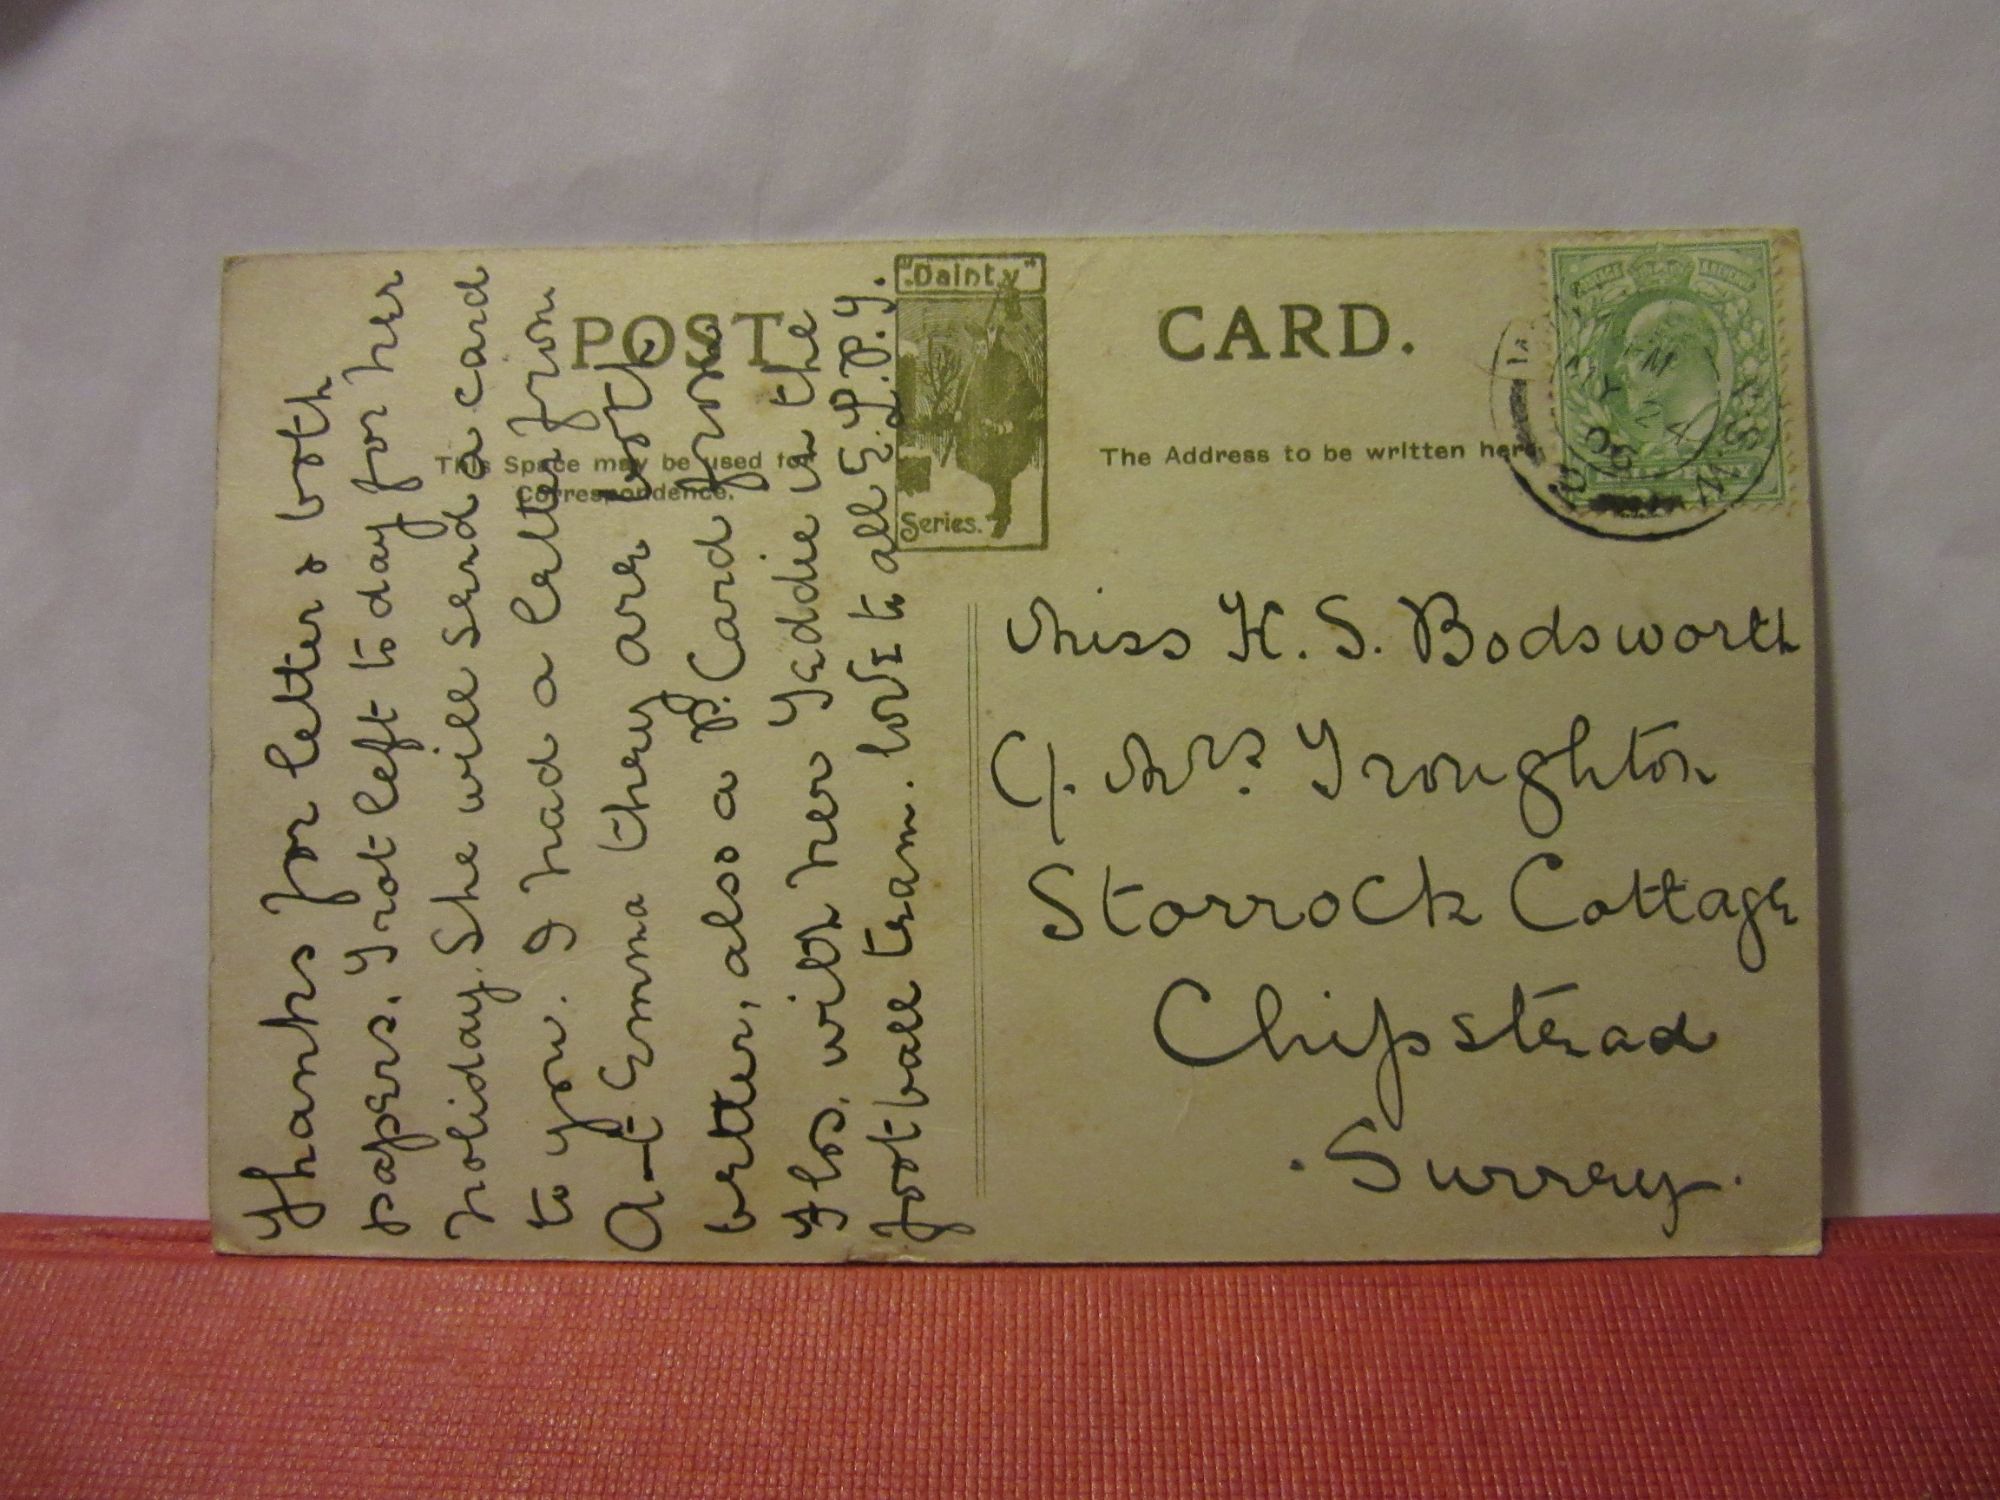 POST CARD.
"Dainty"
Series.
This Space may be used to
Correspondence.
The Address to be written here
Thanks for letter & both
papers. Trot left to day for her
holiday. She will send a card
to you. I had a letter from
A-t Emma they are both
better, also a P. Card from
Flos, with her Teddie in the
football team. love to all
Miss K. S. Bodsworth
C/. Mrs. Troughton
Storrock Cottage
Chipstead
Surrey.